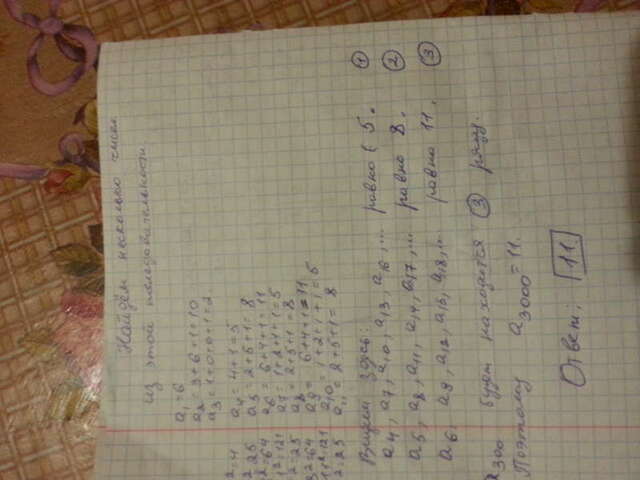 Найдём несколько чисел
из этой последовательности.
a₁=6
a₂= 3+6+1=10
a₃= 1+0+0+1=2
²=4 a₄= 4+1=5
²=25 a₅= 2+5+1= 8
²=64 a₆= 6+4+1=11
1²=121 a₇= 1+2+1+1=5
²=25 a₈= 2+5+1=8
8²=64 a₉= 6+4+1=11
11²=121 a₁₀= 1+2+1+1=5
²=25 a₁₁= 2+5+1= 8
здесь:
a₄, a₇, a₁₀, a₁₃, a₁₆,... равно 5. ①
a₅, a₈, a₁₁, a₁₄, a₁₇,... равно 8. ②
a₆, a₉, a₁₂, a₁₅, a₁₈,... равно 11. ③
a₃₀₀ будт находится ③ ряду.
Поэтому a₃₀₀₀=11.
Ответ: 11.